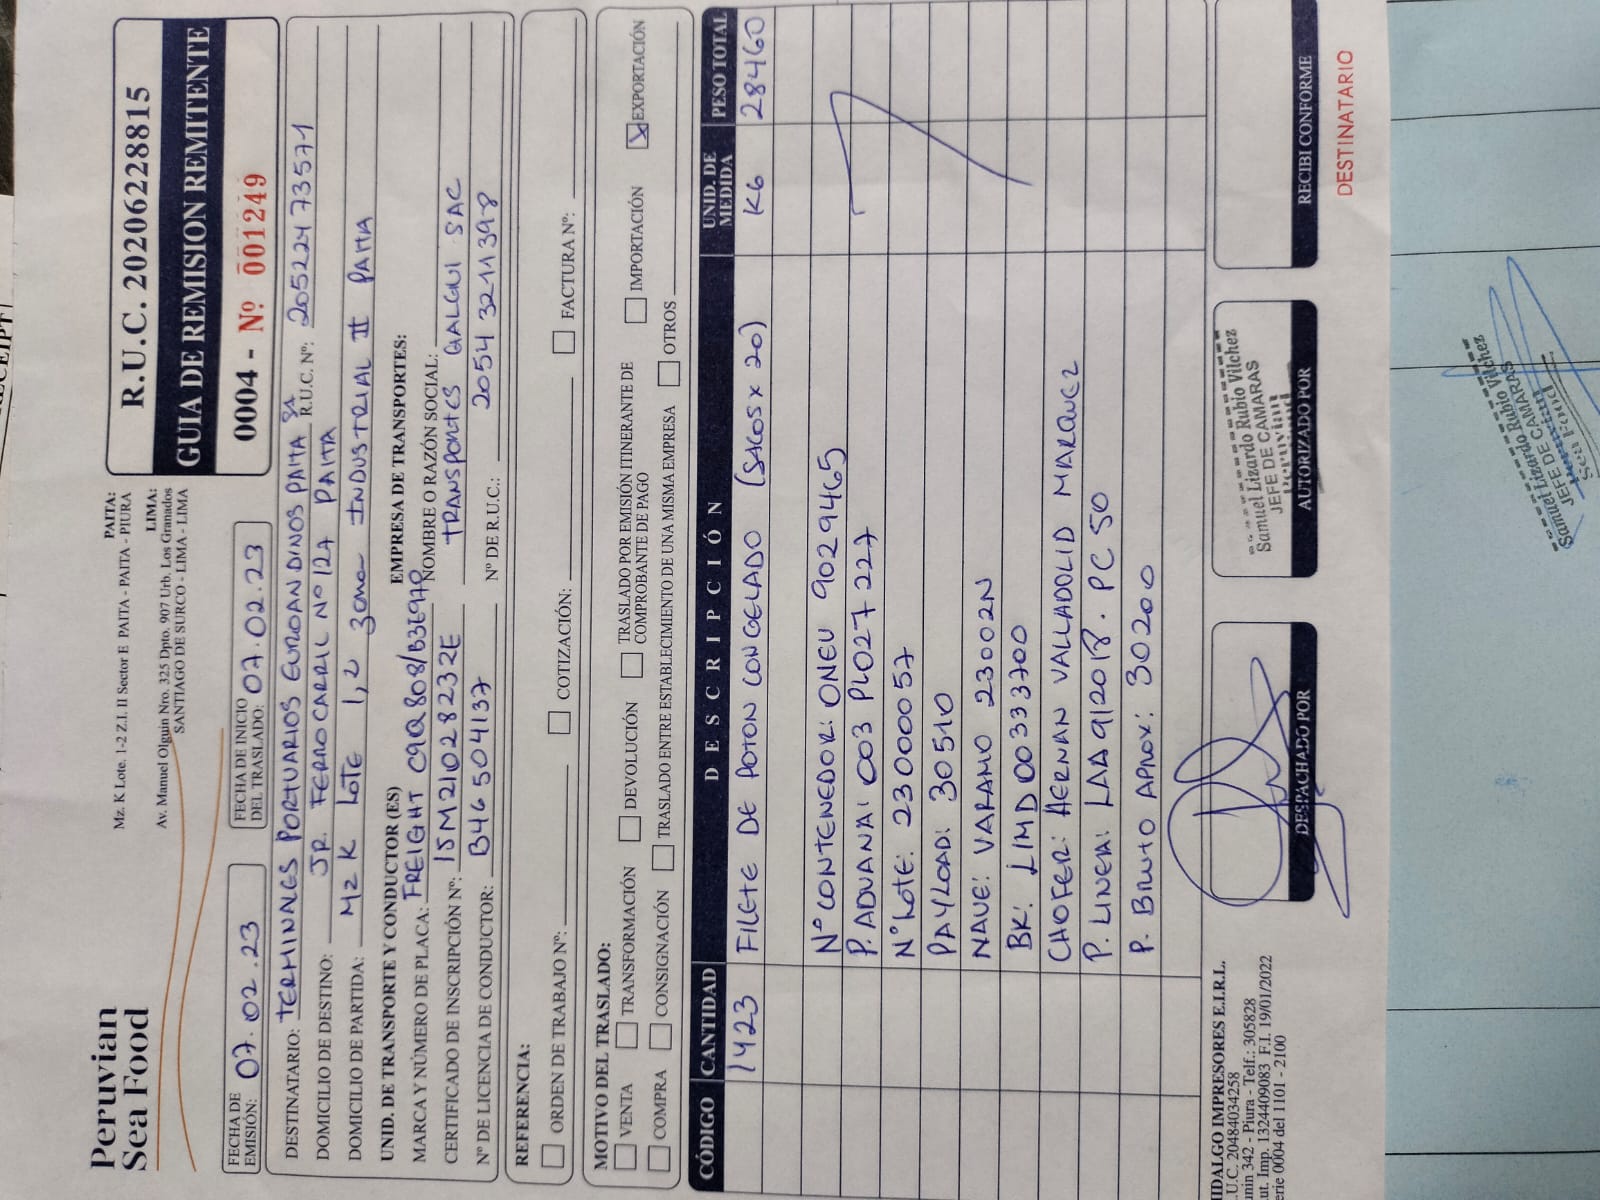 Peruvian
Sea Food
PAITA:
Mz. K Lote. 1-2 Z.I. II Sector E PAITA - PAITA - PIURA
LIMA:
Av. Manuel Olguin Nro. 325 Dpto. 907 Urb. Los Granados
SANTIAGO DE SURCO - LIMA - LIMA
R.U.C. 20206228815
GUIA DE REMISION REMITENTE
0004 - Nº 001249
FECHA DE EMISIÓN: 07.02.23
FECHA DE INICIO DEL TRASLADO: 07.02.23
DESTINATARIO: TERMINALES PORTUARIOS EUROANDINOS PAITA SA R.U.C. Nº: 20522473571
DOMICILIO DE DESTINO: JR. FERROCARRIL Nº 127 PAITA
DOMICILIO DE PARTIDA: MZ K LOTE 1,2 ZONA INDUSTRIAL II PAITA
UNID. DE TRANSPORTE Y CONDUCTOR (ES)
MARCA Y NÚMERO DE PLACA: FREIGHT C9Q808/B3E970
CERTIFICADO DE INSCRIPCIÓN Nº: 15M21028232E
Nº DE LICENCIA DE CONDUCTOR: B46504137
EMPRESA DE TRANSPORTES:
NOMBRE O RAZÓN SOCIAL:
TRANSPORTES QALGUI SAC
Nº DE R.U.C.: 20543211398
REFERENCIA:
ORDEN DE TRABAJO Nº: COTIZACIÓN: FACTURA Nº:
MOTIVO DEL TRASLADO:
VENTA TRANSFORMACIÓN DEVOLUCIÓN TRASLADO POR EMISIÓN ITINERANTE DE COMPROBANTE DE PAGO IMPORTACIÓN X EXPORTACIÓN
COMPRA CONSIGNACIÓN TRASLADO ENTRE ESTABLECIMIENTO DE UNA MISMA EMPRESA OTROS
CÓDIGO CANTIDAD DESCRIPCIÓN UNID. DE MEDIDA PESO TOTAL
1423 FILETE DE POTON CONGELADO (SACOS x 20) KG 28460
Nº CONTENEDOR: ONEU 9029465
P. ADUANA: 003 PL027227
Nº LOTE: 23000057
PAYLOAD: 30510
NAVE: VARAMO 23002N
BK: LIMD00333700
CHOFER: HERNAN VALLADOLID MARQUEZ
P. LINEA: LAA912018. PC 50
P. BRUTO APROX: 30200
HIDALGO IMPRESORES E.I.R.L.
R.U.C. 20484034258
Junin 342 - Piura - Telf.: 305828
Aut. Imp. 1324409083 F.I. 19/01/2022
Serie 0004 del 1101 - 2100
DESPACHADO POR
Samuel Lizardo Rubio Vilchez
JEFE DE CAMARAS
Peruvian
AUTORIZADO POR
RECIBI CONFORME
DESTINATARIO
Samuel Lizardo Rubio Vilchez
JEFE DE CAMARAS
Sea Food